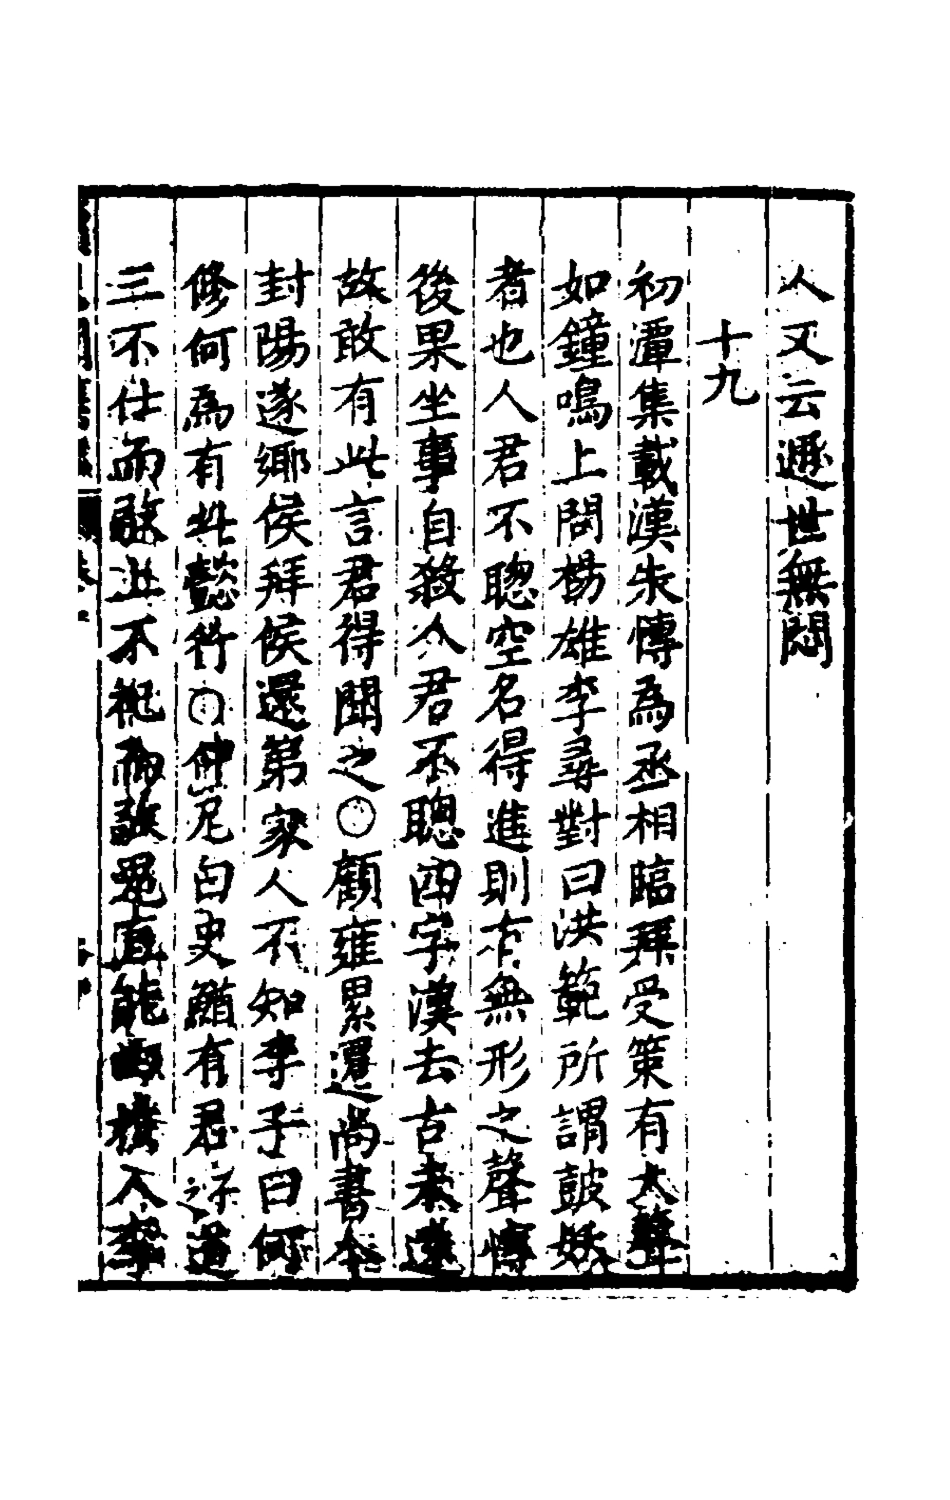 人又云遯世無悶
十九
初潭集載漢朱愽為丞相臨拜受策有大聲
如鐘鳴上問楊雄李尋對曰洪範所謂鼓妖
者也人君不聰空名得進則有無形之聲愽
後果坐事自殺人君不聰四字漢去古未遠
故敢有此言君得聞之○顧雍累遷尚書令
封陽遂鄉侯拜侯還第家人不知李子曰何
修何為有此懿行○仲尼曰史鰌有君子之道
三不仕而敬上不祀而敬鬼直能曲於人李